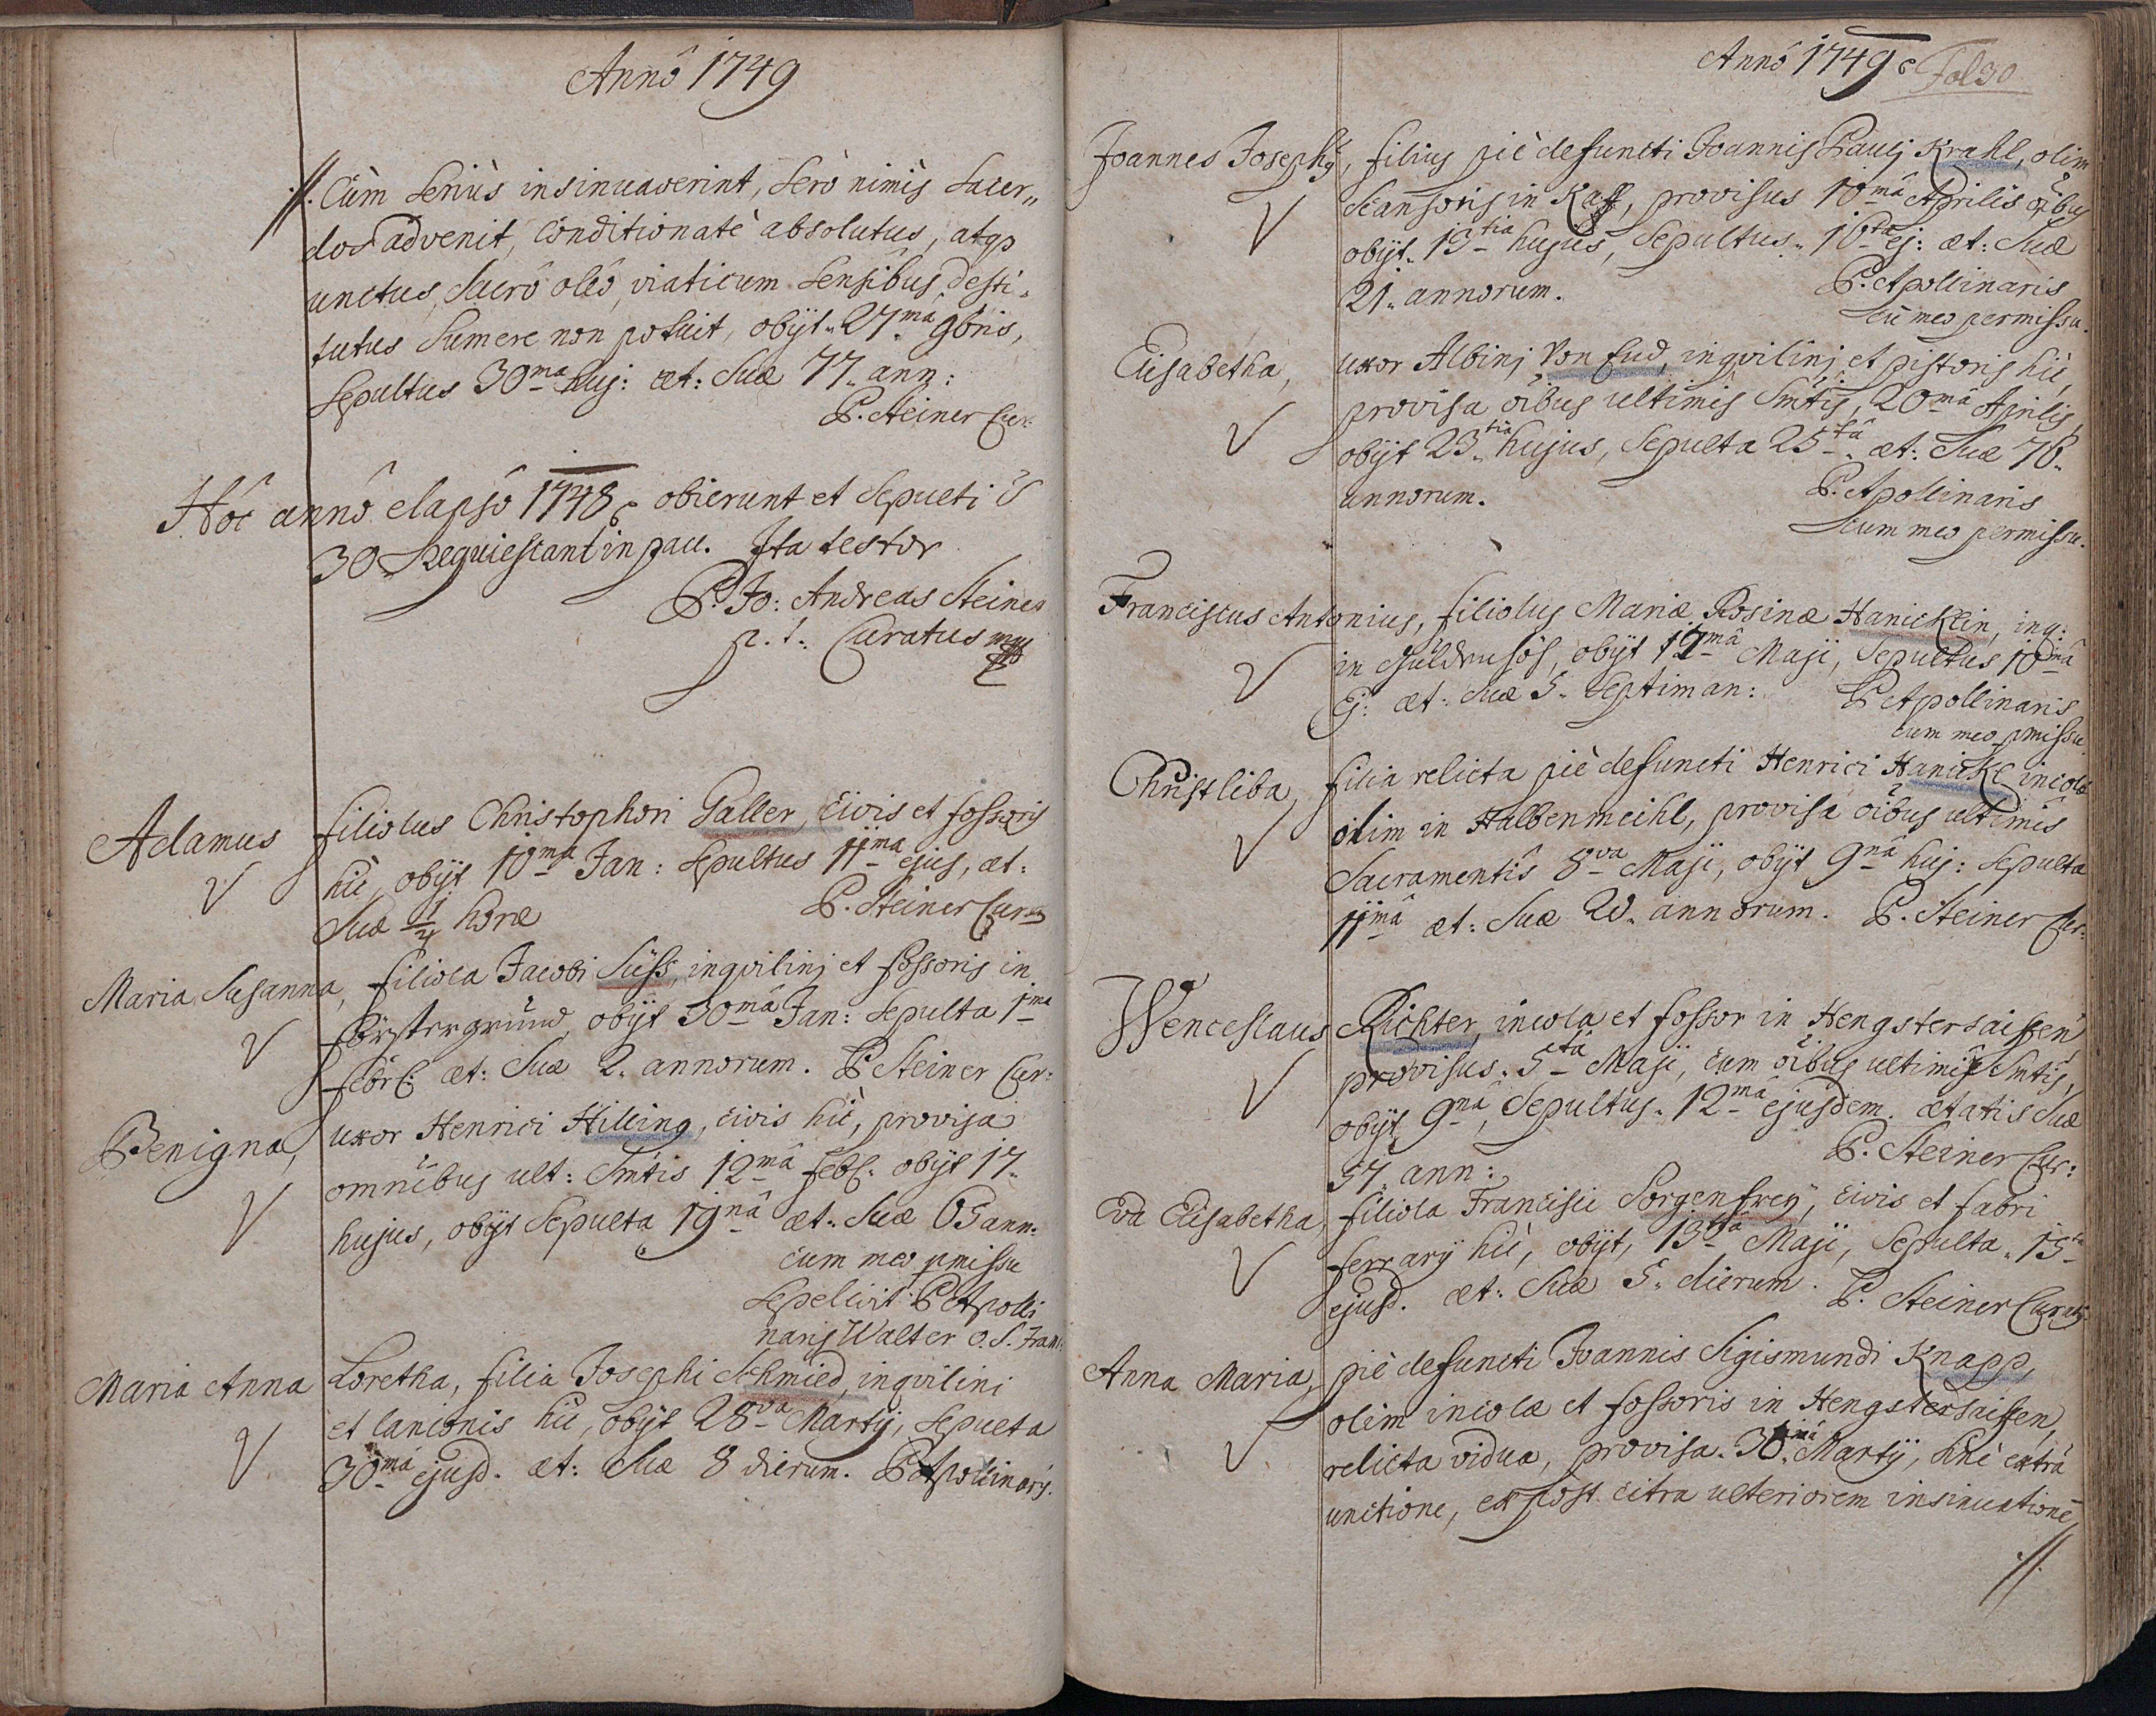 Annô 1749
//. Cùm seriùs insinuaverint, serò nimis Sacer„
dos advenit, conditionatè absolutus, atqz
unctus Sacrô oleô, viaticum Sensibus desti„
tutus sumere non potuit, obijt „27ma 9bris,
sepultus 30ma huj: æt: suæ 77. ann:
P. Steiner Cur:
Hôc annô elapsô 1748 obierunt et sepulti s
30 Requiescant in pace. Ita testor
P. Jo: Andreas Steiner
p. t. Curatus mpp
Adamus filiolus Christophori Galler, civis et fossoris
hic, obijt 10ma Jan: sepultus 11ma ejus, æt:
suæ 1/4 horæ P. Steiner Curat
Maria Susanna, filiola Jacobi Süss, inqvilinj et fossoris in
Förstergrund, obijt 30mâ Jan: sepulta 1ma
febr: æt: suæ 2. annorum. P Steiner Cur:
Benigna, uxor Henrici Hilling, civis hic, provisa
omnibus ult: Smtis 12mâ feb: obijt 17.
hujus, obijt sepulta 19nâ æt: suæ 65 ann:
cum meo pmissu
sepelivit P Apolli
naris Walter O. S. Fran:
Maria Anna Loretha, filia Josephi Schmied, inqvilini
et lanionis hic, obijt 28va Martij, sepulta
30mâ ejusd. æt: suæ 8 dierum. P Apollinaris.
Annô 1749 Fol 30
Joannes Josephg, filius piè defuncti Joannis Paulj Krahl, olim
scansoris in Kaff, provisus 10mâ Aprilis oîbus
obijt „13tia hujus, sepultus „16ta ej: æt: suæ
21. annorum. P. Apollinaris
cu meo permissu.
Elisabetha, uxor Albinj Von End, inqvilinj et pistoris hic,
provisa oîbus ultimis Smtis, 20mâ Aprilis,
obijt 23tia hujus, sepulta 25tâ æt: suæ 76.
annorum. P. Apollinaris
cum meo permissu.
Franciscus Antonius, filiolus Mariæ Rosinæ Hanicklin, inq:
in, obijt 17mâ Maji, sepultus 18mâ
Ej: æt: suæ 5. septiman: P Apollinaris
cum meo pmissu
Christliba, filia relicta piè defuncti Henrici Hanickl incolæ
olim in Halbenmeihl, provisa oîbus ultimis
Sacramentis 8va Maji, obijt 9nâ huj: sepulta
11mâ æt: suæ 20. annorum. P. Steiner Cur:
Wenceslaus Richter, incola et fossor in Hengstersaiffen
provisus „5tâ Maji, cum oîbus ultimis Smtis,
obijt 9nâ, sepultus „12mâ ejusdem. ætatis suæ
57. ann: P. Steiner Cur:
Eva Elisabetha, filiola Francisci Sorgenfrey, civis et fabri
ferrarij hic, obijt, 13tiâ Maji, sepulta „15ta
ejusd. æt: suæ 5. dierum. P. Steiner Curat
Anna Maria, piè defuncti Joannis Sigismundi Knapp,
olim incolæ et fossoris in Hengstersaiffen,
relicta vidua, provisa „30mâ Martij, sine extrâ
unctione, ex post citra ulteriorem insinuationē
//.